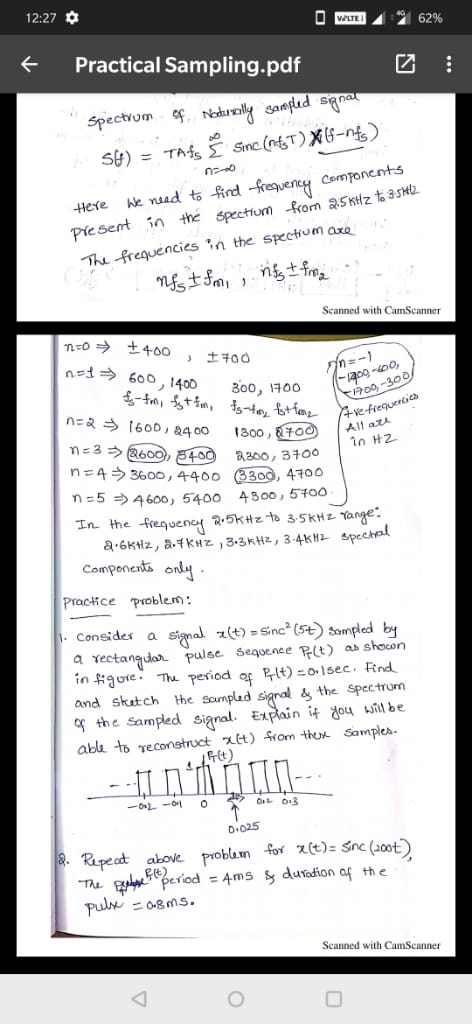 12:27
VoLTE 4G 62%
Practical Sampling.pdf
Spectrum of Naturally sampled signal
S(f) = TAfs ∞Σn=-∞ Sinc(nfsT) X(f-nfs)
Here We need to find frequency Components
present in the spectrum from 2.5KHZ to 3.5KHZ
The frequencies in the spectrum are
nfs ± fm1 , nfs ± fm2
Scanned with CamScanner
n=0 ⇒ ±400 , ±700
n=-1
-1400,-600,
-1700,-300
n=1 ⇒ 600, 1400 300, 1700
fs-fm1 fs+fm1 fs-fm2 fs+fm2
+ve frequencies
All are
in HZ
n=2 ⇒ 1600, 2400 1300, 2700
n=3 ⇒ 2600, 3400 2300, 3700
n=4 ⇒ 3600, 4400 3300, 4700
n=5 ⇒ 4600, 5400 4300, 5700.
In the frequency 2.5KHZ to 3.5KHZ range:
2.6KHZ, 2.7KHZ, 3.3KHZ, 3.4KHZ spectral
Components only.
Practice problem:
1. Consider a signal x(t) = sinc²(5t) sampled by
a rectangular pulse sequence PT(t) as shown
in figure. The period of PT(t) = 0.1sec. Find
and sketch the sampled signal & the spectrum
of the sampled signal. Explain if you will be
able to reconstruct x(t) from these samples.
1 PT(t)
-0.2 -0.1 0 0.2 0.3
0.025
2. Repeat above problem for x(t) = Sinc(200t)
The PT(t) period = 4ms & duration of the
pulse = 0.8ms.
Scanned with CamScanner